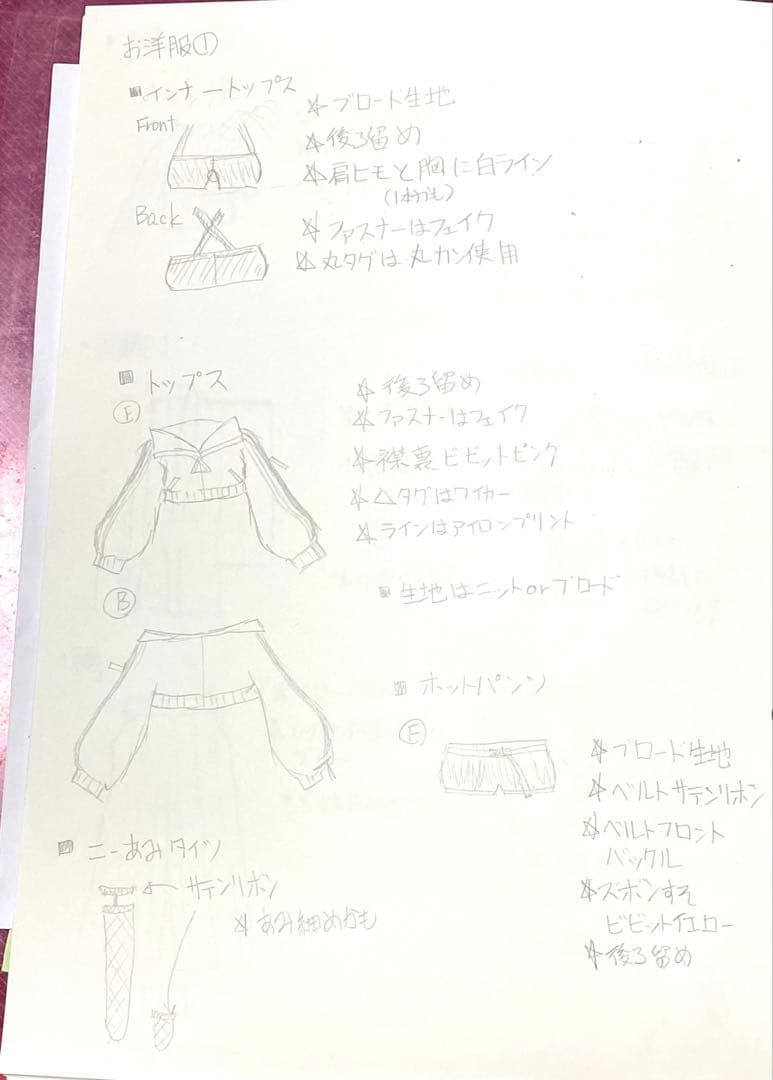 お洋服①
■インナートップス
Front
☆ブロード生地
☆後ろ留め
☆肩ヒモと胸に白ライン
(1本かも)
Back
☆ファスナーはフェイク
☆丸タグは丸カン使用
■トップス
Ⓕ
☆後ろ留め
☆ファスナーはフェイク
☆襟裏ビビットピンク
☆△タグはワイヤー
☆ラインはアイロンプリント
■生地はニットorブロード
Ⓑ
■ホットパンツ
Ⓕ
☆ブロード生地
☆ベルトサテンリボン
☆ベルトフロント
バックル
☆ズボンすそ
ビビットイエロー
☆後ろ留め
■ニーあみタイツ
←サテンリボン
☆あみ細めかも